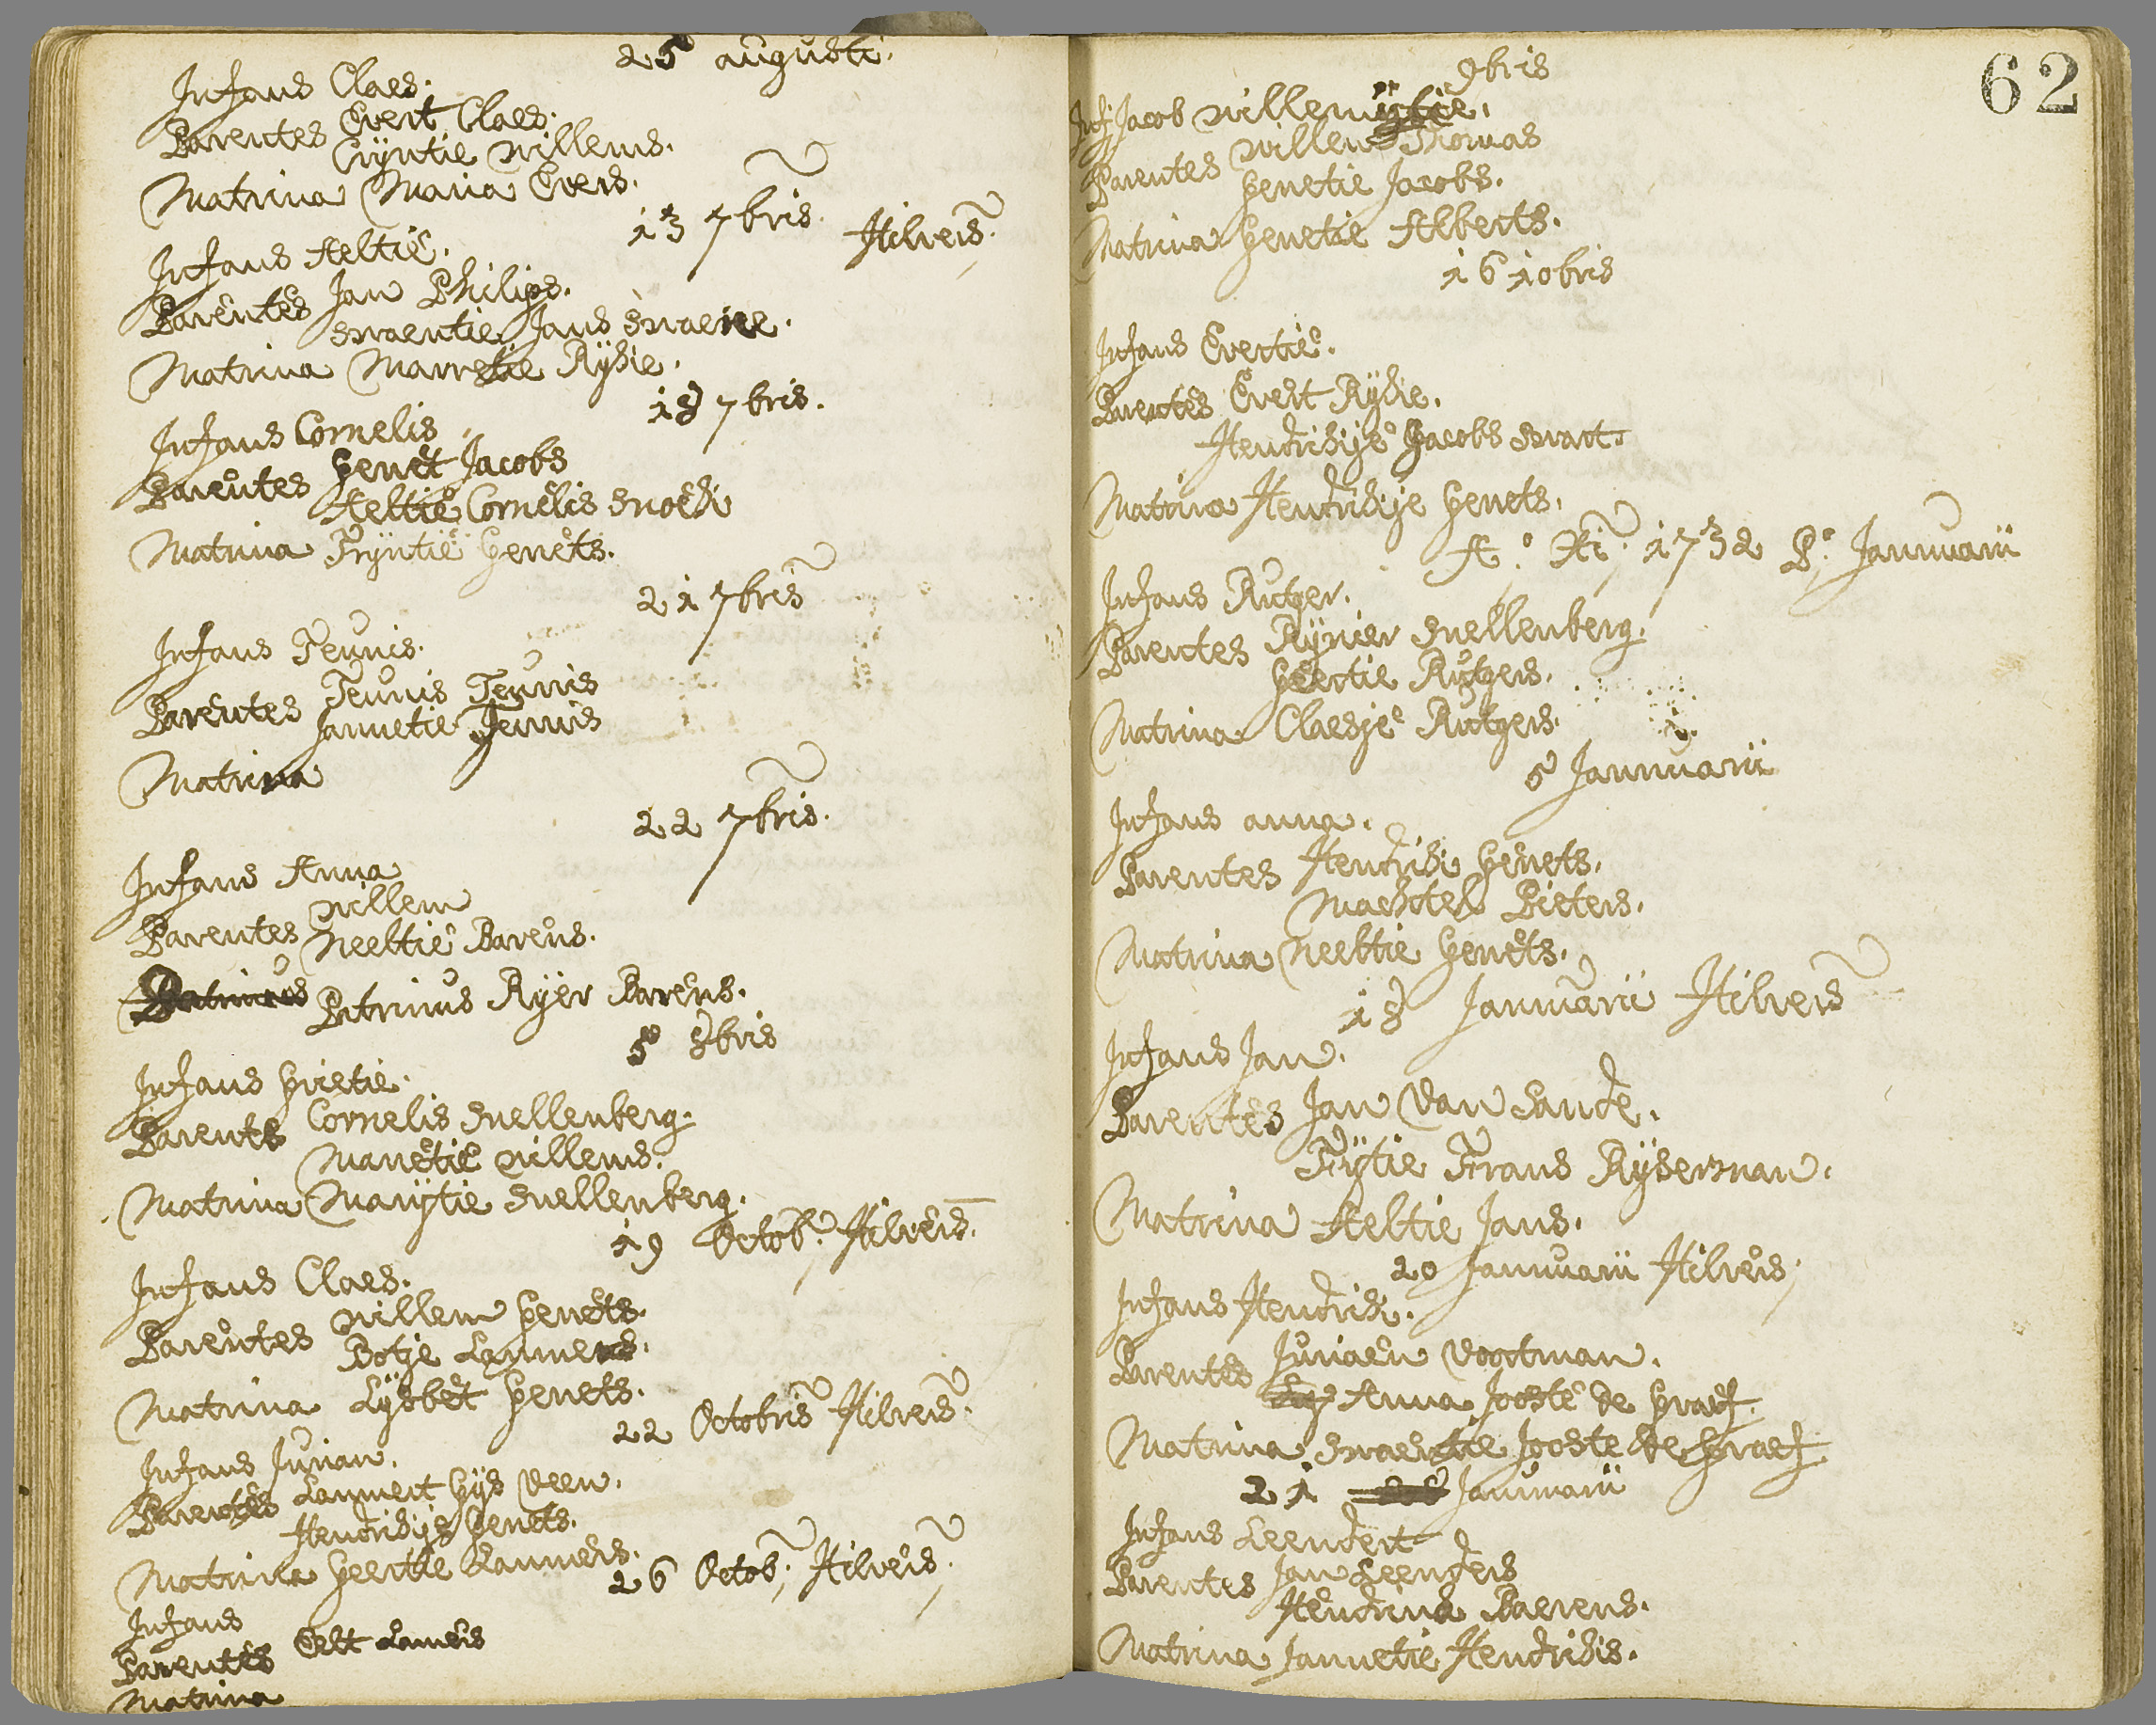 25 augusti.
Infans Claes.
Parentes Evert Claes.
Crÿntie willems.
Matrina Maria Evers.
13 7bris. Hilvers.
Infans Aeltie.
Parentes Jan Philips.
Swaentie Jans Swaene.
Matrina Marretie Rÿkie.
18 7bris.
Infans Cornelis
Parentes Gerret Jacobs
Aeltie Cornelis Snoek
Matrina Trÿntie Gerrets.
21 7bris
Infans Teunis.
Parentes Teunis Teunis
Jannetie Teunis
Matrina
22 7bris.
Infans Anna
Parentes willem
Neeltie Barens.
Patrinus Patrinus Rÿer Barens.
5 8bris
Infans Grietie.
Parents Cornelis Snellenberg.
Marretie willems.
Matrina Marÿtie Snellenberg.
19 Octob. Hilvers.
Infans Claes.
Parentes willem Gerrets.
Botje Lammers.
Matrina Lÿsbet Gerrets.
22 Octobris Hilvers.
Infans Jurian.
Parentes Lammert Gÿs Veen.
Hendrikije Gerrets.
Matrina Geertie Lammers.
26 Octob; Hilvers.
Infans
Parentes Elt Lamers
Matrina
62
9bris
Inf Jacob willem
Parentes willem Thomas
Gerretie Jacobs.
Matrina Gerretie Alberts.
16 10bris
Infans Evertie.
Parentes Evert Rÿkie.
Hendrikije Jacobs Swart.
Matrina Hendrikije Gerrets.
A.o Xti. 1732 P.o Januarii
Infans Rutger.
Parentes Rÿnier Snellenberg.
Geertie Rutgers.
Matrina Claesje Rutgers.
5 Jannuarii
Infans anna.
Parentes Hendrik Gerrets.
Machtel Pieters.
Matrina Neeltie Gerrets.
18 Januarii Hilvers
Infans Jan.
Parentes Jan Van Sande.
Fÿtie Frans Rÿserman.
Matrina Aeltie Jans.
20 Januarii Hilvers;
Infans Hendrik.
Parentes Juriaen Voortman.
Anna Jooste de Graef.
Matrina Swaentie Jooste de Graef
21 Januarii
Infans Leendert
Parentes Jan Leenders
Hendrina Baerens.
Matrina Jannetie Hendriks.